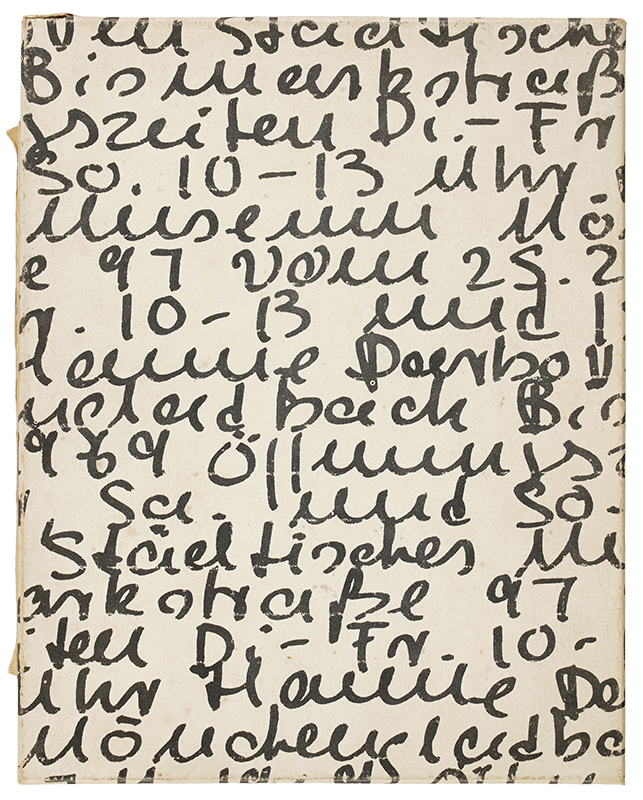 ven Städtische
Bismarkstraß
gszeiten Di.-Fr
So. 10-13 Uhr
Museum Mö
e 97 vom 25.2
r. 10-13 und 1
Hanne Darbov
ngladbach Bis
969 Öffnungsz
Sa. und So.
Städtisches Mu
arkstraße 97
iten Di.-Fr. 10-
Uhr Hanne Da
Mönchengladba